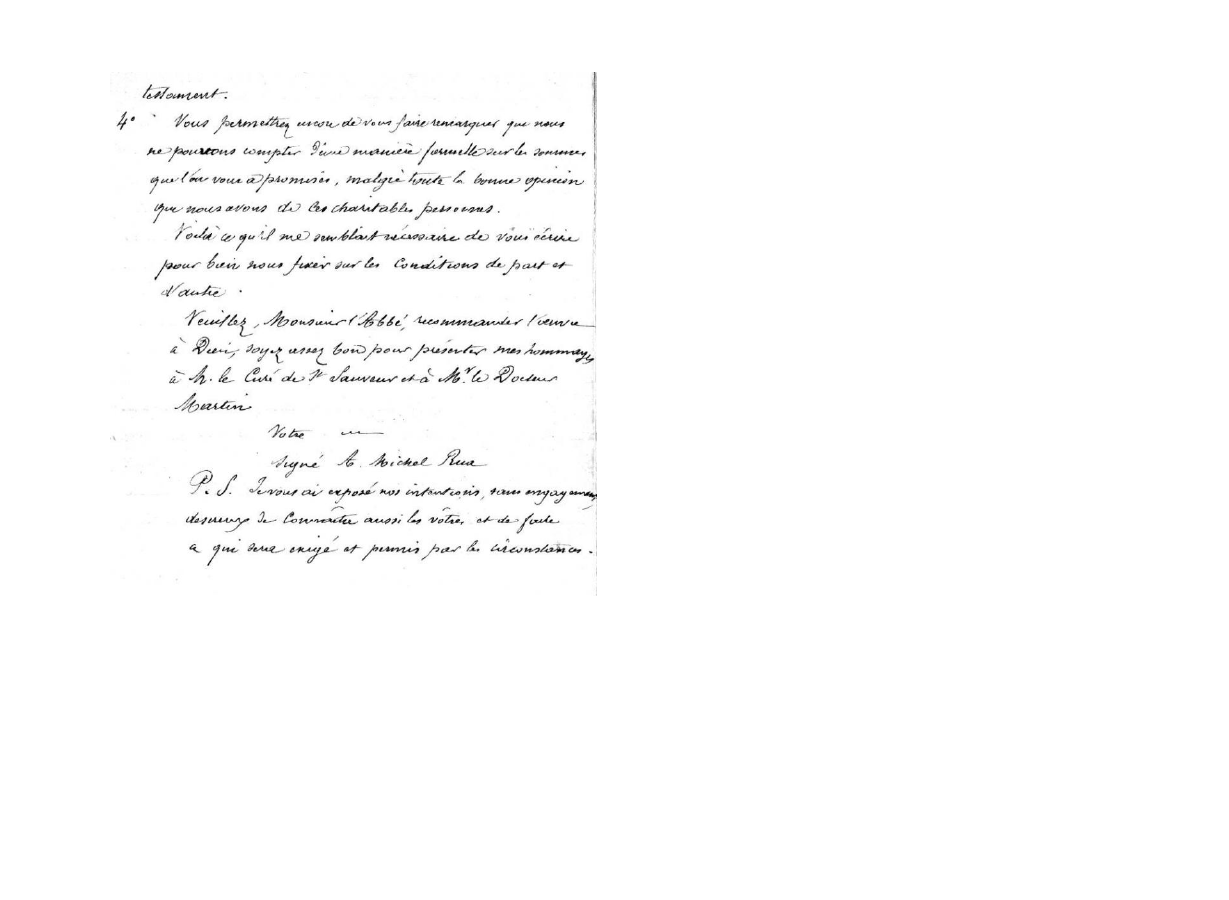 testament.
4° Vous permettrez encore de vous faire remarquer que nous
ne pouvons compter d'une manière formelle sur les sommes
que l'on vous a promises, malgré toute la bonne opinion
que nous avons de ces charitables personnes.
Voilà ce qu'il me semblait nécessaire de vous écrire
pour bien nous fixer sur les Conditions de part et
d'autre.
Veuillez, Monsieur l'Abbé, recommander l'œuvre
à Dieu, soyez assez bon pour présenter mes hommages
à M. le Curé de St Sauveur et à Mr le Docteur
Martin
Votre
signé A. Michel Rua
P. S. Je vous ai exposé nos intentions, sans engagement,
desireux de Connaître aussi les vôtres et de faire
ce qui sera exigé et permis par les circonstances.